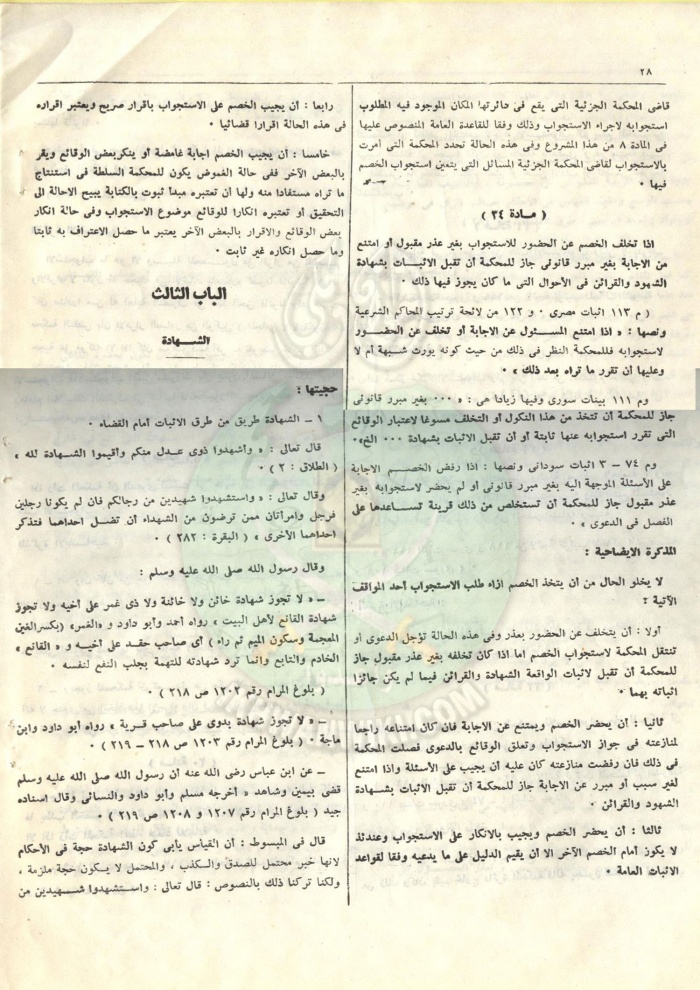 ٢٨
قاضى المحكمة الجزئية التى يقع فى دائرتها المكان الموجود فيه المطلوب
استجوابه لاجراء الاستجواب وذلك وفقا للقاعدة العامة المنصوص عليها
فى المادة ٨ من هذا المشروع وفى هذه الحالة تحدد المحكمة التى أمرت
بالاستجواب لقاضى المحكمة الجزئية المسائل التى يتعين استجواب الخصم
فيها •
( مادة ٣٤ )
اذا تخلف الخصم عن الحضور للاستجواب بغير عذر مقبول أو امتنع
من الاجابة بغير مبرر قانونى جاز للمحكمة أن تقبل الاثبات بشهادة
الشهود والقرائن فى الأحوال التى ما كان يجوز فيها ذلك •
( م ١١٣ اثبات مصرى • و ١٢٢ من لائحة ترتيب المحاكم الشرعية
ونصها : « اذا امتنع المسئول عن الاجابة أو تخلف عن الحضور
لاستجوابه فللمحكمة النظر فى ذلك من حيث كونه يورث شبهة أم لا
وعليها أن تقرر ما تراه بعد ذلك » •
وم ١١١ بينات سورى وفيها زيادا هى : « ••• بغير مبرر قانونى
جاز للمحكمة أن تتخذ من هذا النكول أو التخلف مسوغا لاعتبار الوقائع
التى تقرر استجوابه عنها ثابتة أو أن تقبل الاثبات بشهادة ••• الخ» •
وم ٧٤ – ٣ اثبات سودانى ونصها : اذا رفض الخصم الاجابة
على الأسئلة الموجهة اليه بغير مبرر قانونى أو لم يحضر لاستجوابه بغير
عذر مقبول جاز للمحكمة أن تستخلص من ذلك قرينة تساعدها على
الفصل فى الدعوى » •
المذكرة الايضاحية :
لا يخلو الحال من أن يتخذ الخصم ازاء طلب الاستجواب أحد المواقف
الآتية :
أولا : أن يتخلف عن الحضور بعذر وفى هذه الحالة تؤجل الدعوى أو
تنتقل المحكمة لاستجواب الخصم اما اذا كان تخلفه بغير عذر مقبول جاز
للمحكمة أن تقبل لاثبات الواقعة الشهادة والقرائن فيما لم يكن جائزا
اثباته بهما •
ثانيا : أن يحضر الخصم ويمتنع عن الاجابة فان كان امتناعه راجعا
لمنازعته فى جواز الاستجواب وتعلق الوقائع بالدعوى فصلت المحكمة
فى ذلك فان رفضت منازعته كان عليه أن يجيب على الأسئلة واذا امتنع
لغير سبب أو مبرر عن الاجابة جاز للمحكمة أن تقبل الاثبات بشهادة
الشهود والقرائن •
ثالثا : أن يحضر الخصم ويجيب بالانكار على الاستجواب وعندئذ
لا يكوز أمام الخصم الآخر الا أن يقيم الدليل على ما يدعيه وفقا لقواعد
الاثبات العامة •
رابعا : أن يجيب الخصم على الاستجواب باقرار صريح ويعتبر اقراره
فى هذه الحالة اقرارا قضائيا •
خامسا : أن يجيب الخصم اجابة غامضة أو ينكربعض الوقائع ويقر
بالبعض الآخر ففى حالة الغموض يكون للمحكمة السلطة فى استنتاج
ما تراه مستفادا منه ولها أن تعتبره مبدأ ثبوت بالكتابة يبيح الاحالة الى
التحقيق أو تعتبره انكارا للوقائع موضوع الاستجواب وفى حالة انكار
بعض الوقائع والاقرار بالبعض الآخر يعتبر ما حصل الاعتراف به ثابتا
وما حصل انكاره غير ثابت •
الباب الثالث
الشهادة
حجيتها :
١ – الشهادة طريق من طرق الاثبات أمام القضاء •
قال تعالى : « وأشهدوا ذوى عدل منكم وأقيموا الشهادة لله »
( الطلاق : ٢ ) •
وقال تعالى : « واستشهدوا شهيدين من رجالكم فان لم يكونا رجلين
فرجل وامرأتان ممن ترضون من الشهداء أن تضل احداهما فتذكر
احداهما الأخرى » ( البقرة : ٢٨٢ ) •
وقال رسول الله صلى الله عليه وسلم :
– « لا تجوز شهادة خائن ولا خائنة ولا ذى غمر على أخيه ولا تجوز
شهادة القانع لأهل البيت » رواه أحمد وأبو داود و «الغمر» (بكسرالغين
المعجمة وسكون الميم ثم راء ) أى صاحب حقد على أخيه و « القانع »
الخادم والتابع وانما ترد شهادته للتهمة بجلب النفع لنفسه •
( بلوغ المرام رقم ١٢٠٢ ص ٢١٨ ) •
– « لا تجوز شهادة بدوى على صاحب قرية » رواه أبو داود وابن
ماجة • ( بلوغ المرام رقم ١٢٠٣ ص ٢١٨ – ٢١٩ ) •
– عن ابن عباس رضى الله عنه أن رسول الله صلى الله عليه وسلم
قضى بيمين وشاهد » أخرجه مسلم وأبو داود والنسائى وقال اسناده
جيد ( بلوغ المرام رقم ١٢٠٧ و ١٢٠٨ ص ٢١٩ ) •
قال فى المبسوط : أن القياس يأبى كون الشهادة حجة فى الأحكام
لانها خبر محتمل للصدق والكذب ، والمحتمل لا يكون حجة ملزمة ،
ولكنا تركنا ذلك بالنصوص : قال تعالى : واستشهدوا شهيدين من